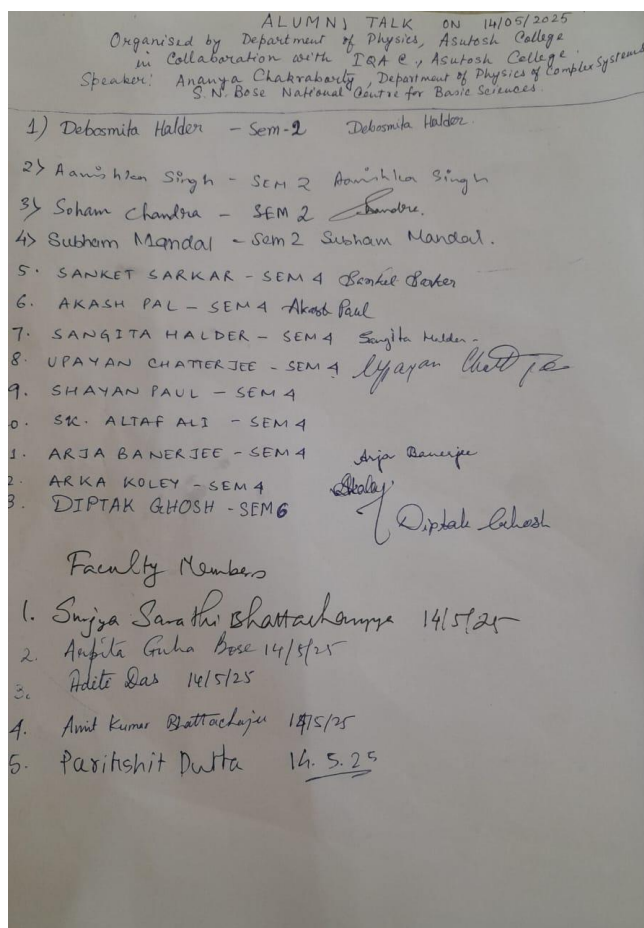 ALUMNI TALK ON 14/05/2025
Organised by Department of Physics, Asutosh College
in Collaboration with IQAC, Asutosh College.
Speaker: Ananya Chakraborty, Department of Physics of Complex Systems
S. N. Bose National Centre for Basic Sciences.
1) Debosmita Halder - Sem-2 Debosmita Halder.
2) Aanishka Singh - SEM 2 Aanishka Singh
3) Soham Chandra - SEM 2
4) Subham Mandal - Sem 2 Subham Mandal.
5. SANKET SARKAR - SEM 4 Sanket Sarkar
6. AKASH PAL - SEM 4 Akash Paul
7. SANGITA HALDER - SEM 4 Sangita Halder-
8. UPAYAN CHATTERJEE - SEM 4 Upayan
9. SHAYAN PAUL - SEM 4
0. SK. ALTAF ALI - SEM 4
1. ARJA BANERJEE - SEM 4 Arja Banerjee
2. ARKA KOLEY - SEM 4
3. DIPTAK GHOSH - SEM 6 Diptak Ghosh
Faculty Members
1. Sarathi Bhattacharyya 14/5/25
2. Arpita Guha Bose 14/5/25
3. Aditi Das 14/5/25
4. Amit Kumar Bhattacharjee 14/5/25
5. Parikshit Dutta 14.5.25